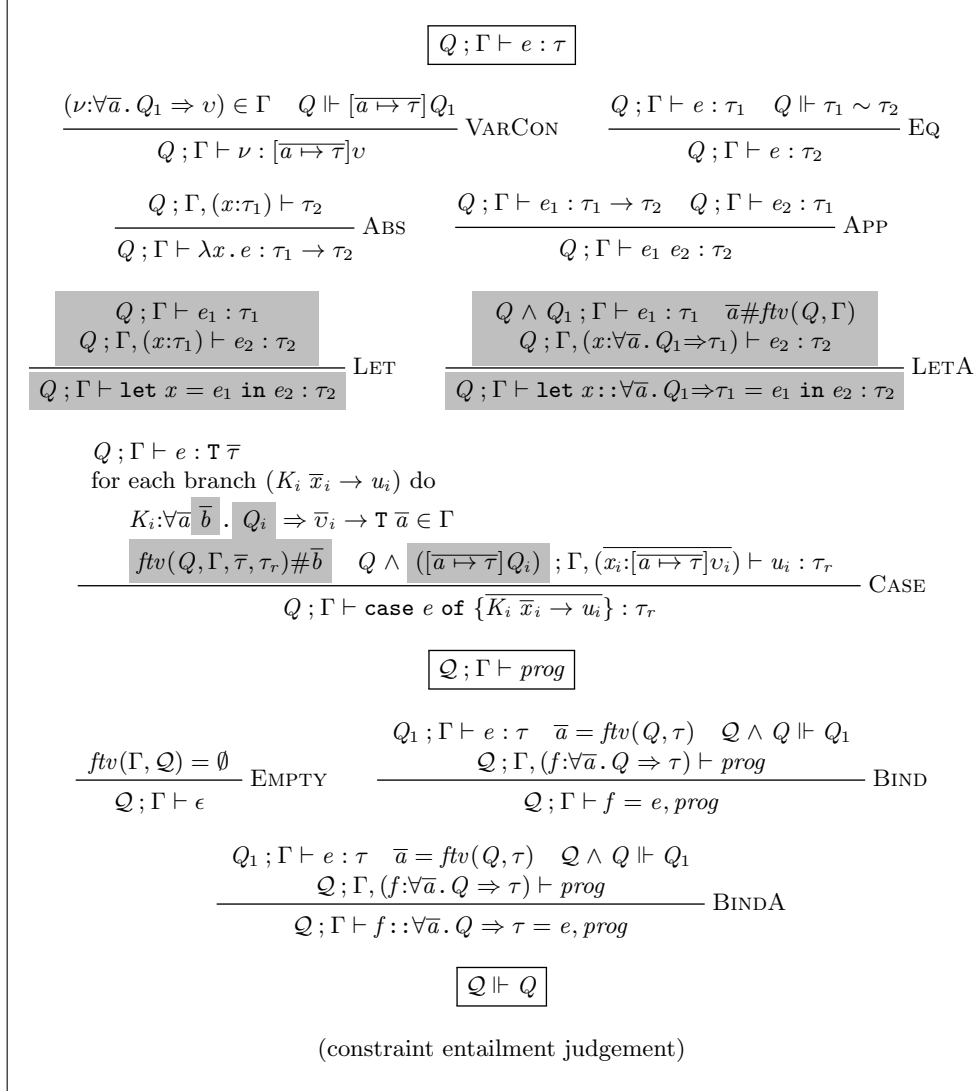 Q ; Γ ⊢ e : τ
(ν:∀a̅. Q₁ ⇒ υ) ∈ Γ   Q ⊩ [a̅ ↦ τ̅]Q₁
Q ; Γ ⊢ ν : [a̅ ↦ τ̅]υ
VarCon
Q ; Γ ⊢ e : τ₁   Q ⊩ τ₁ ∼ τ₂
Q ; Γ ⊢ e : τ₂
Eq
Q ; Γ, (x:τ₁) ⊢ τ₂
Q ; Γ ⊢ λx. e : τ₁ → τ₂
Abs
Q ; Γ ⊢ e₁ : τ₁ → τ₂   Q ; Γ ⊢ e₂ : τ₁
Q ; Γ ⊢ e₁ e₂ : τ₂
App
Q ; Γ ⊢ e₁ : τ₁
Q ; Γ, (x:τ₁) ⊢ e₂ : τ₂
Q ; Γ ⊢ let x = e₁ in e₂ : τ₂
Let
Q ∧ Q₁ ; Γ ⊢ e₁ : τ₁   a̅#ftv(Q, Γ)
Q ; Γ, (x:∀a̅. Q₁⇒τ₁) ⊢ e₂ : τ₂
Q ; Γ ⊢ let x::∀a̅. Q₁⇒τ₁ = e₁ in e₂ : τ₂
LetA
Q ; Γ ⊢ e : T τ̅
for each branch (Kᵢ x̅ᵢ → uᵢ) do
Kᵢ:∀a̅ b̅. Qᵢ ⇒ υ̅ᵢ → T a̅ ∈ Γ
ftv(Q, Γ, τ̅, τᵣ)#b̅   Q ∧ ([a̅ ↦ τ̅]Qᵢ) ; Γ, (xᵢ:[a̅ ↦ τ̅]υᵢ) ⊢ uᵢ : τᵣ
Q ; Γ ⊢ case e of {Kᵢ x̅ᵢ → uᵢ} : τᵣ
Case
𝒬 ; Γ ⊢ prog
ftv(Γ, 𝒬) = ∅
𝒬 ; Γ ⊢ ϵ
Empty
Q₁ ; Γ ⊢ e : τ   a̅ = ftv(Q, τ)   𝒬 ∧ Q ⊩ Q₁
𝒬 ; Γ, (f:∀a̅. Q ⇒ τ) ⊢ prog
𝒬 ; Γ ⊢ f = e, prog
Bind
Q₁ ; Γ ⊢ e : τ   a̅ = ftv(Q, τ)   𝒬 ∧ Q ⊩ Q₁
𝒬 ; Γ, (f:∀a̅. Q ⇒ τ) ⊢ prog
𝒬 ; Γ ⊢ f::∀a̅. Q ⇒ τ = e, prog
BindA
𝒬 ⊩ Q
(constraint entailment judgement)